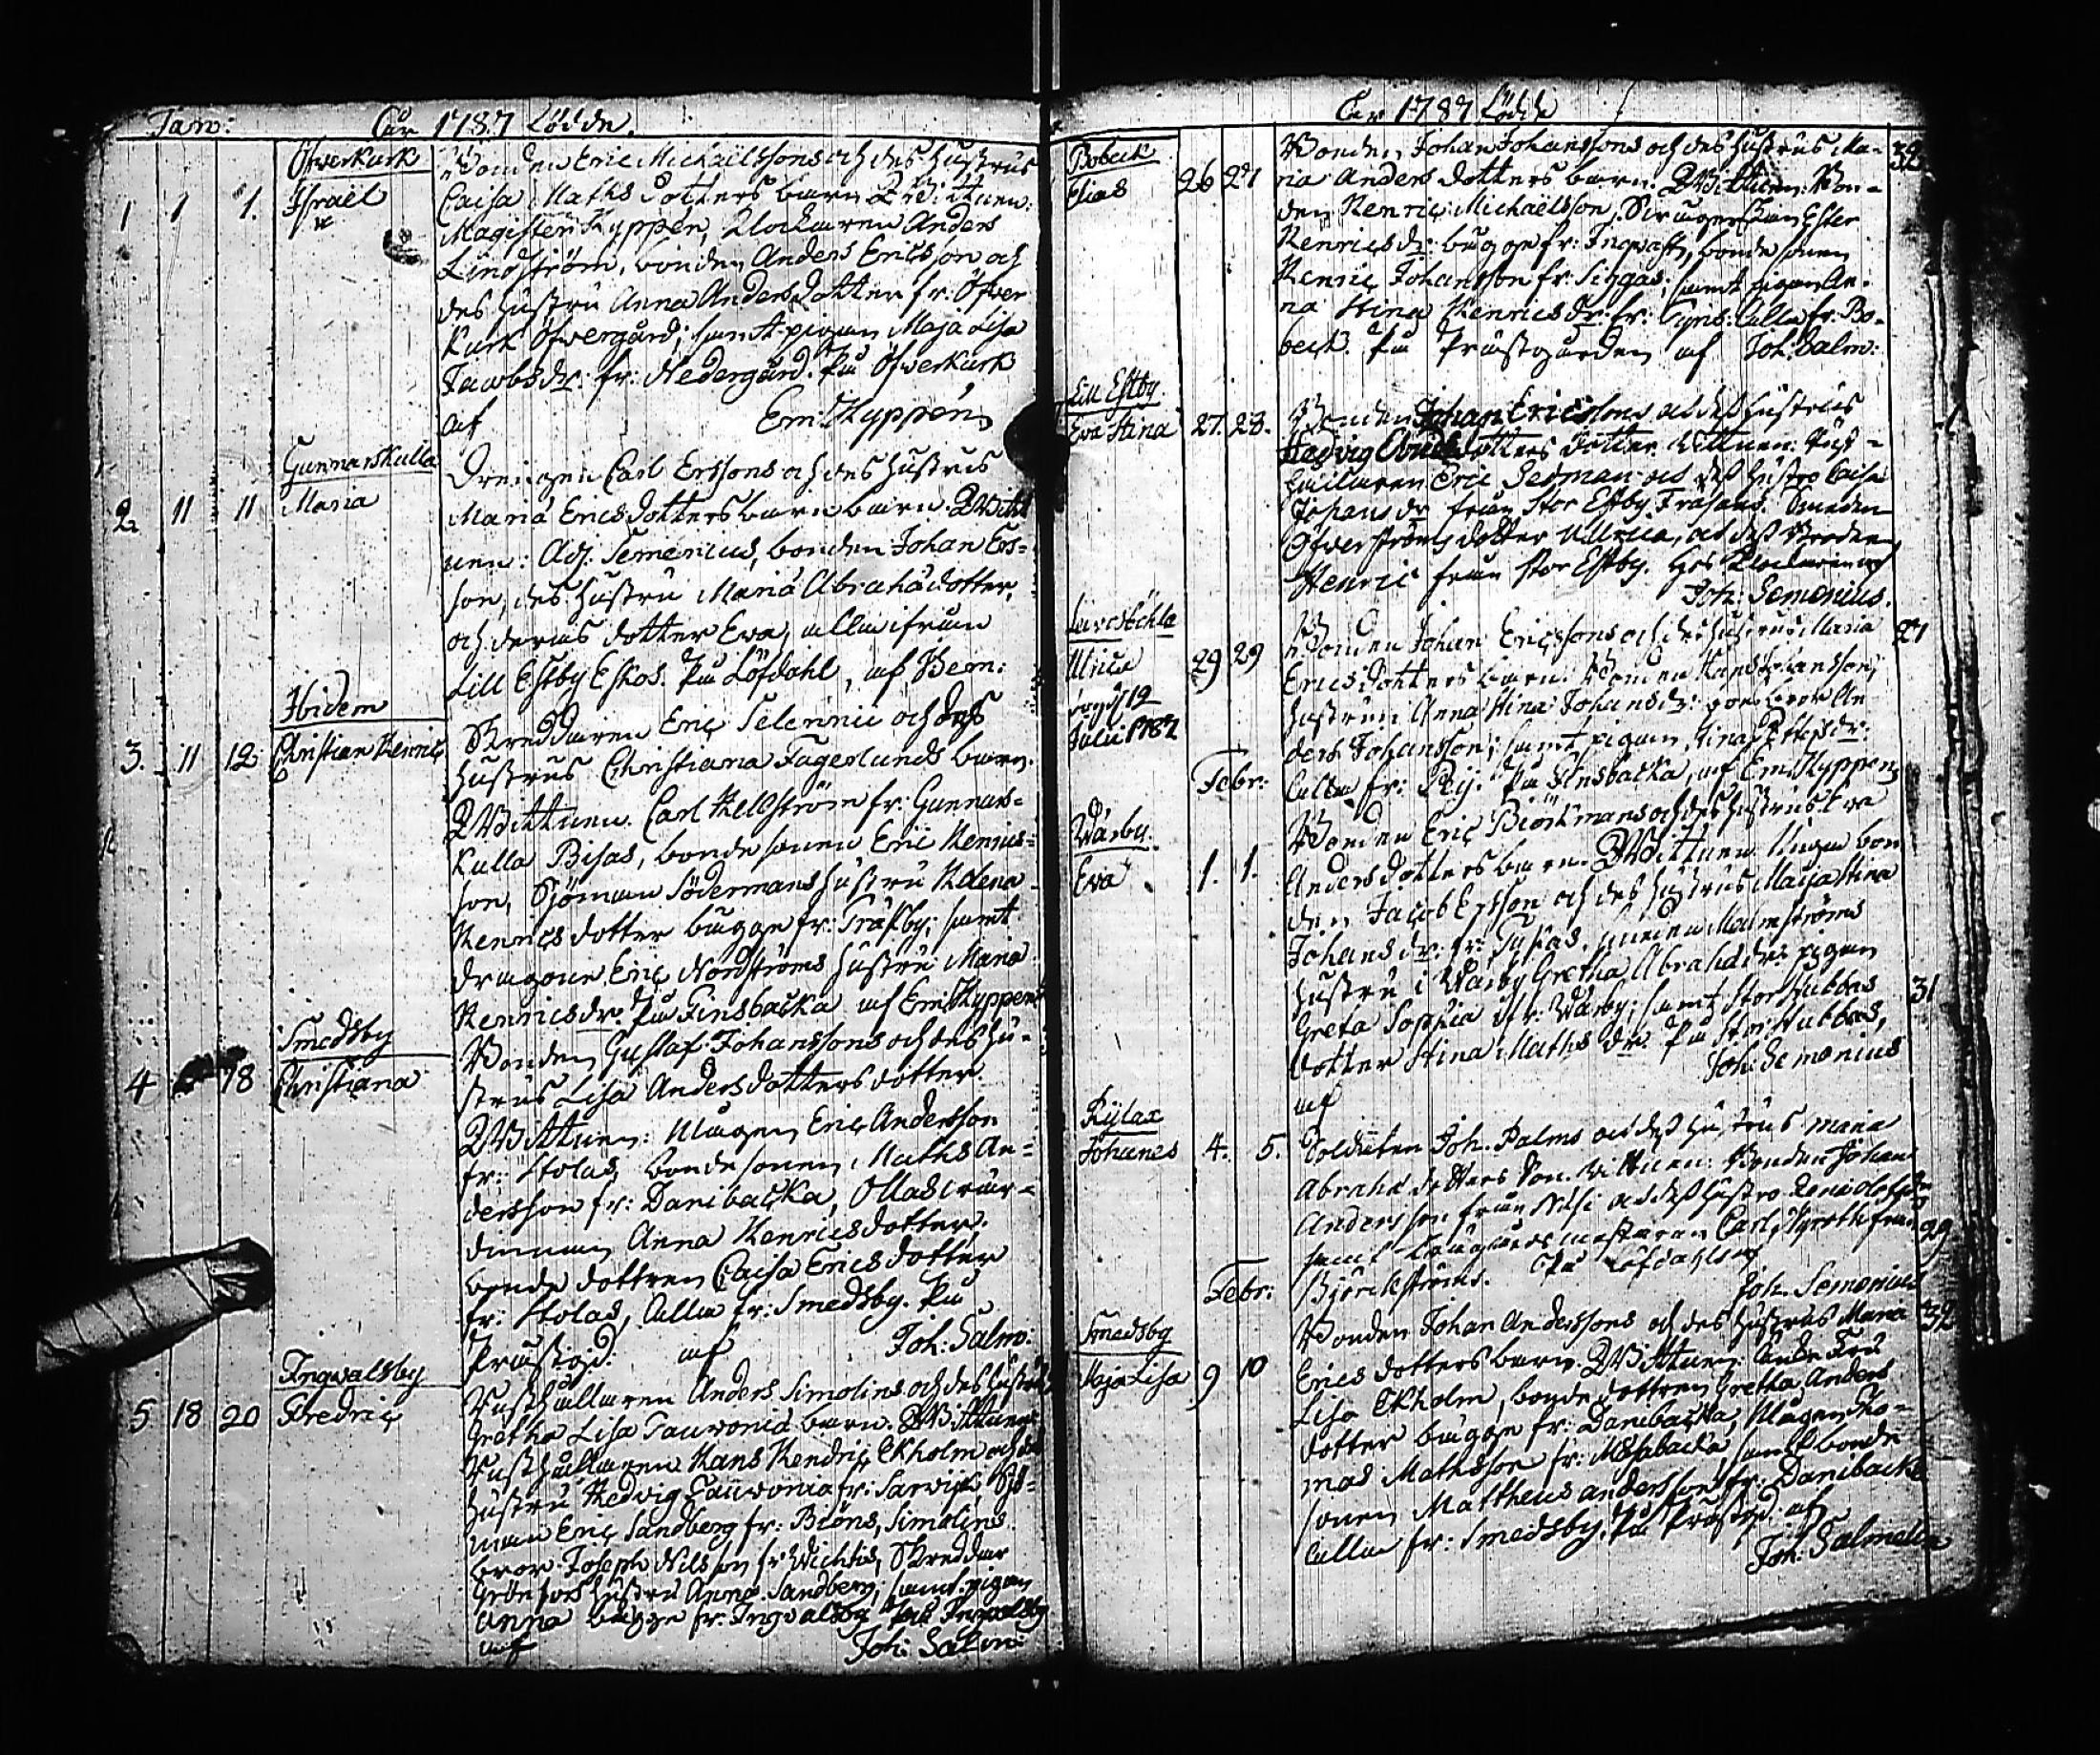 Janv: Åhr 1787 Födde.
Öfwerkurk
1 1 1. Israel
Bonden Eric Michaëlssons och des hustrus
Caisa Mathsdotters barn. Wittnen:
Magister Kyppén, Klockaren Anders
Lindström, bonden Anders Ericsson och
des hustru Anna Andersdotter fr: Öfwer
kurk Öfwergård; samt pigan Maja Lisa
Jacobsdr: fr: Nedergård. På Öfwerkurk
af Em: Kyppén
Gunnarskulla
2. 11 11 Maria
Drengen Carl Erssons och des hustrus
Maria Ericsdotters barn. Witt
nen: Adj: Semenius, bonden Johan Ers=
son, des hustru Maria Abrahādotter,
och deras dotter Eva, alla ifrån
Lill Estby Eskos. På Löfdahl, af Bem:
Ibidem
3. 11 12 Christian Henric
Skreddaren Eric Selennii och des
hustrus Christiana Fagerlunds barn.
Wittnen. Carl Hellström fr: Gunnars=
kulla Bisas, bondesonen Eric Henrics=
son, Sjöman Södermans hustru Helena
Henricsdotter bägge fr: Träskby; samt
dragoun Eric Nordströms hustru Maria
Henricsdr. På Finsbacka af Em: Kyppén
Smedsby
4 18 Christiana
Bonden Gustaf Johanssons och des hu=
strus Lisa Andersdotters dotter.
Wittnen: Mågen Eric Andersson
fr: Stolas, bondesonen Maths An=
dersson fr: Danibacka, Ollas
Anna Henricsdotter.
bonde dottren Caisa Ericsdotter
fr: Stolas, alla fr: Smedsby. På
Prästgd: af Joh: Salm:
Ingvalsby
5 18 20 Fredric
Rusthållaren Anders Simolins och des hustrus
Gretha Lisa Tauvonia barn. Wittnen
Rusthållaren Hans Hendric Ekholm och des
hustru Hedvig Tauvonia fr: Sarwik, Sjö=
man Eric Sandberg fr: Biöns, Simolins
bror Joseph Nilsson fr: Wichtis, Skreddar
Grönfors hustru Anna Sandberg; samt pigan
Anna bägge fr: Ingvalsby. På Ingvalsby
af Joh: Salm:
Åhr 1787 Födde
Bobeck
Elias 26 27
Bonden Johan Johanssons och des hustrus Ma=
ria Andersdotters barn. Wittnen: Bon=
den Henric Michaëlsson, Ester
Henricsdr: bägge fr: Ingvalsby, bonde sonen
Henric Johansson fr: Sigas; samt pigan An=
na Stina Henricsdr: fr: alla fr: Bo=
beck. På Prästgården af Joh: Salm:
Lill Estby
Eva Stina 27. 28.
Bonden Johan Ericssons och deß hustrus
Hedvig dotters dotter. Wittnen: Rust=
hållaren Eric Sedman och deß hustro Caisa
Johansdr från Stor Estby Frasans. Smeden
Öfverströms dotter Ullrica, och deß broder
Henric från stor Estby. hos Klockaren af
Joh: Semenius.
Ulrica 29 29
död d 19
Julii 1787
Bonden Johan Ericssons och des hustrus Maria 27
Ericsdotters barn. Bonden Hans Johansson,
hustrun Anna Stina Johansdr: An
ders Johansson; samt pigan Stina
alla fr: Rij: På Finsbacka, af Em: Kyppén
Febr:
Wärby.
Eva 1. 1.
Bonden Eric Biörkmans och des hustrus Eva
Andersdotters barn. Wittnen. Unga bon
den Jacob Ersson och des hustrus Maija Stina
Johansdr: fr: Malmströms
hustru i Wärby Gretha Abrahādr: pigan
Greta Sophia ifr: Wärby; samt Stor Hubbas 31
dotter Stina Mathsdr: På Stor Hubbas,
af Joh: Semenius
Kylax
Johanes 4. 5.
Soldaten Joh. Palms och deß hustrus Maria
Abrahā dotters Son. Wittnen: Bonden Johan
Andersson från och deß hustro
samt Carl från 29
Björckströms. På Löfdahls af
Joh. Semenius
Febr:
Smedsby
Maja Lisa 9 10
Bonden Johan Anderssons och des hustrus Maria 32
Ericsdotters barn. Wittnen:
Lisa Ekholm, bondedottren Gretha Anders
dotter bägge fr: Danibacka, Mågen Tho=
mas Mathsson fr: Massabacka samt bonde
sonen Mattheus andersson fr: Danibacka
alla fr: Smedsby. På Prästgd: af
Joh: Salmelin